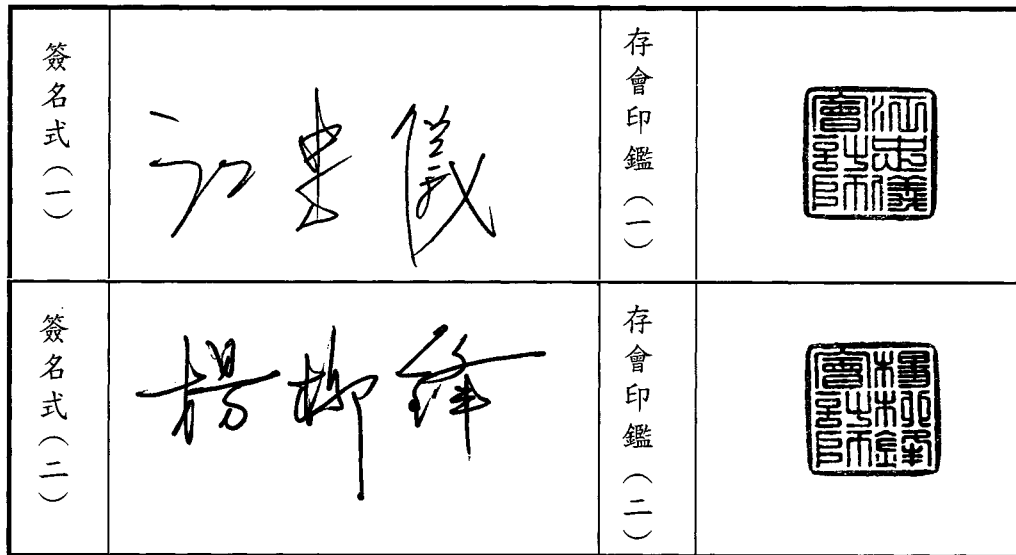 簽名式（一）
江忠儀
存會印鑑（一）
江忠儀
會計師
簽名式（二）
楊柳鋒
存會印鑑（二）
楊柳鋒
會計師